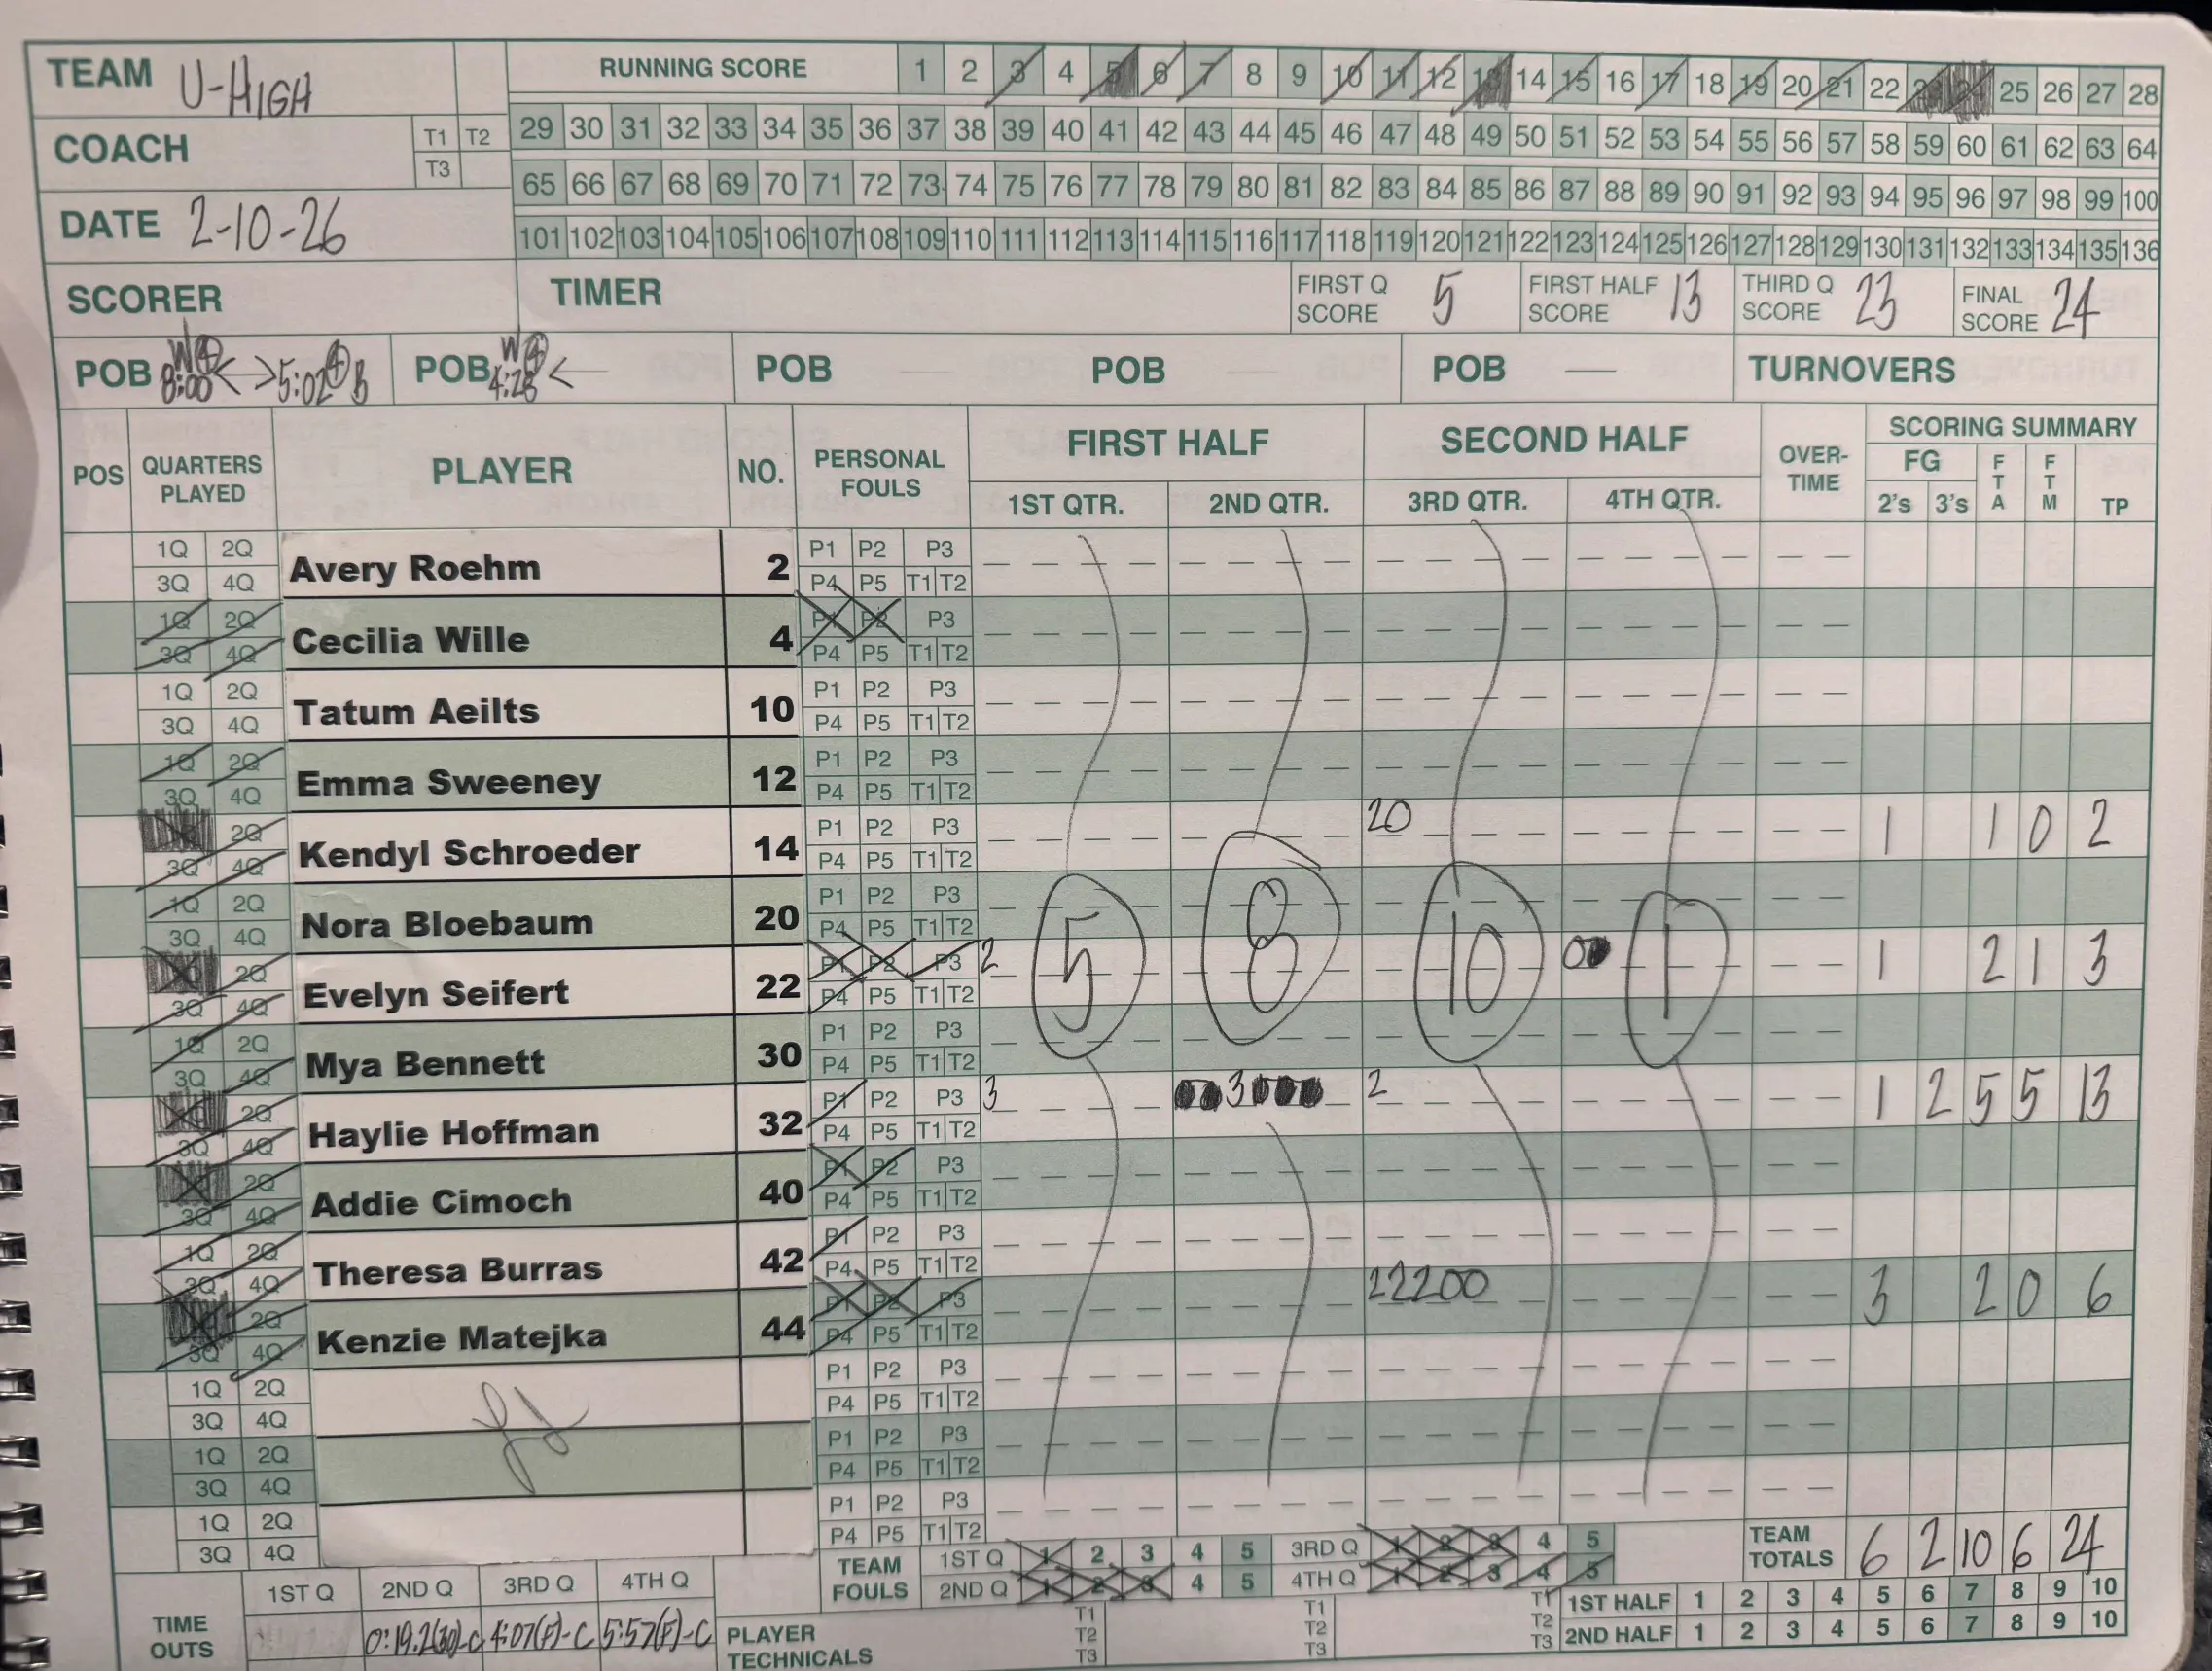 TEAM U-HIGH
RUNNING SCORE 1 2 3 4 5 6 7 8 9 10 11 12 13 14 15 16 17 18 19 20 21 22 23 24 25 26 27 28
29 30 31 32 33 34 35 36 37 38 39 40 41 42 43 44 45 46 47 48 49 50 51 52 53 54 55 56 57 58 59 60 61 62 63 64
COACH T1 T2 T3
65 66 67 68 69 70 71 72 73 74 75 76 77 78 79 80 81 82 83 84 85 86 87 88 89 90 91 92 93 94 95 96 97 98 99 100
DATE 2-10-26
101 102 103 104 105 106 107 108 109 110 111 112 113 114 115 116 117 118 119 120 121 122 123 124 125 126 127 128 129 130 131 132 133 134 135 136
SCORER TIMER FIRST Q SCORE 5 FIRST HALF SCORE 13 THIRD Q SCORE 23 FINAL SCORE 24
POB W 4 8:00 <> 5:02 4 B POB W 4 4:28 < POB POB POB TURNOVERS
POS QUARTERS PLAYED PLAYER NO. PERSONAL FOULS FIRST HALF SECOND HALF OVER-TIME SCORING SUMMARY
1ST QTR. 2ND QTR. 3RD QTR. 4TH QTR. FG 2's 3's FTA FTM TP
1Q 2Q Avery Roehm 2 P1 P2 P3
3Q 4Q P4 P5 T1 T2
1Q 2Q Cecilia Wille 4 P1 P2 P3
3Q 4Q P4 P5 T1 T2
1Q 2Q Tatum Aeilts 10 P1 P2 P3
3Q 4Q P4 P5 T1 T2
1Q 2Q Emma Sweeney 12 P1 P2 P3
3Q 4Q P4 P5 T1 T2
2Q Kendyl Schroeder 14 P1 P2 P3 20 1 1 0 2
3Q 4Q P4 P5 T1 T2
1Q 2Q Nora Bloebaum 20 P1 P2 P3
3Q 4Q P4 P5 T1 T2
2Q Evelyn Seifert 22 P1 P2 P3 2 5 8 10 00 1 1 2 1 3
3Q 4Q P4 P5 T1 T2
1Q 2Q Mya Bennett 30 P1 P2 P3
3Q 4Q P4 P5 T1 T2
2Q Haylie Hoffman 32 P1 P2 P3 3 003000 2 1 2 5 5 13
3Q 4Q P4 P5 T1 T2
2Q Addie Cimoch 40 P1 P2 P3
3Q 4Q P4 P5 T1 T2
1Q 2Q Theresa Burras 42 P1 P2 P3
3Q 4Q P4 P5 T1 T2
2Q Kenzie Matejka 44 P1 P2 P3 22200 3 2 0 6
3Q 4Q P4 P5 T1 T2
1Q 2Q P1 P2 P3
3Q 4Q P4 P5 T1 T2
1Q 2Q P1 P2 P3
3Q 4Q P4 P5 T1 T2
1Q 2Q P1 P2 P3
3Q 4Q P4 P5 T1 T2
TEAM FOULS 1ST Q 1 2 3 4 5 3RD Q 1 2 3 4 5 TEAM TOTALS 6 2 10 6 24
2ND Q 1 2 3 4 5 4TH Q 1 2 3 4 5
TIME OUTS 1ST Q 2ND Q 3RD Q 4TH Q
0:19.2(30)-C 4:07(F)-C 5:57(F)-C
PLAYER TECHNICALS T1 T2 T3 T1 T2 T3 T1 T2 T3
1ST HALF 1 2 3 4 5 6 7 8 9 10
2ND HALF 1 2 3 4 5 6 7 8 9 10